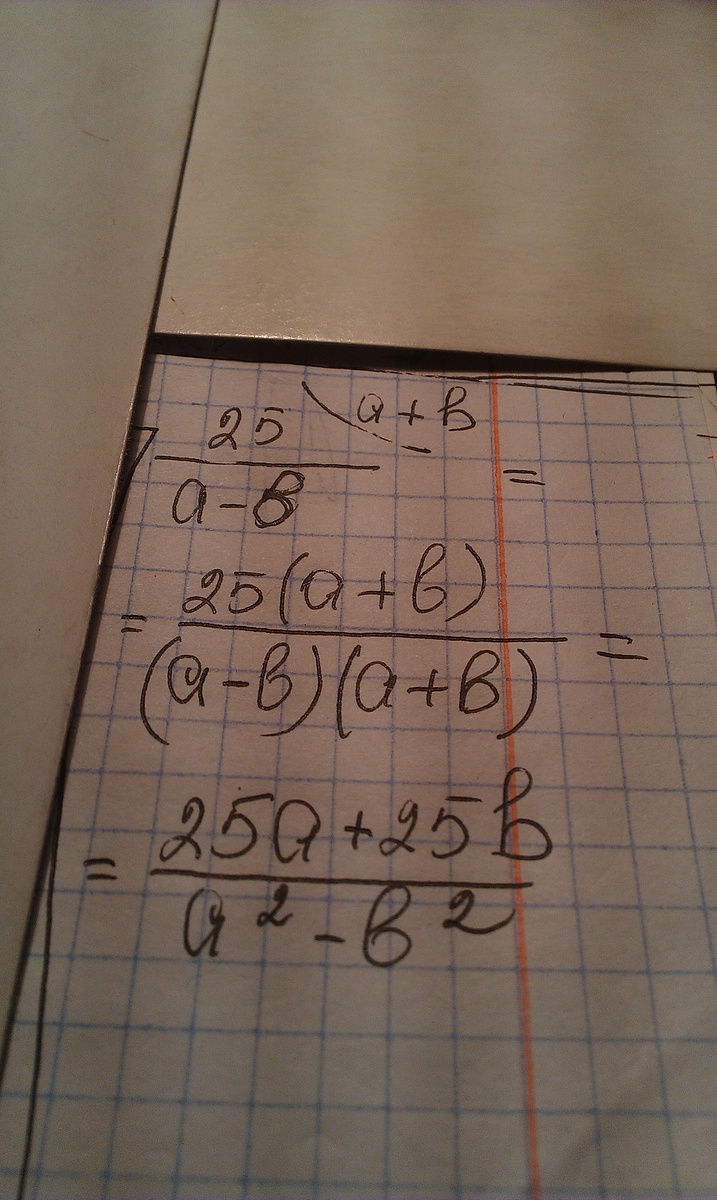 25 a+b
a-b =
= 25(a+b) =
(a-b)(a+b)
= 25a+25b
a²-b²